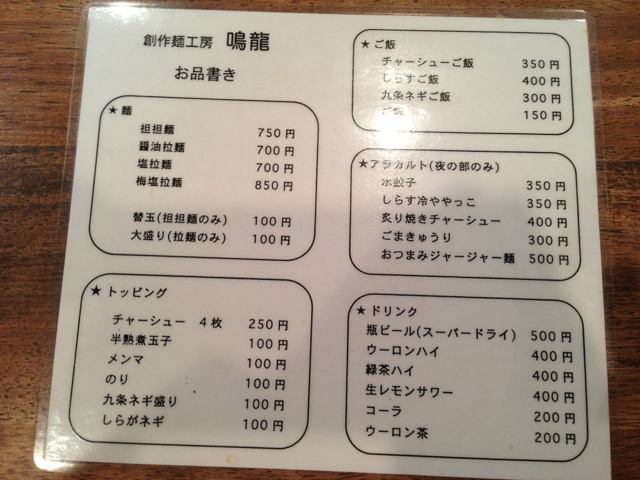 創作麺工房 鳴龍
お品書き
★麺
担担麺 750円
醤油拉麺 700円
塩拉麺 700円
梅塩拉麺 850円
替玉(担担麺のみ) 100円
大盛り(拉麺のみ) 100円
★トッピング
チャーシュー 4枚 250円
半熟煮玉子 100円
メンマ 100円
のり 100円
九条ネギ盛り 100円
しらがネギ 100円
★ご飯
チャーシューご飯 350円
しらすご飯 400円
九条ネギご飯 300円
150円
★アラカルト(夜の部のみ)
水餃子 350円
しらす冷ややっこ 350円
炙り焼きチャーシュー 400円
ごまきゅうり 300円
おつまみジャージャー麺 500円
★ドリンク
瓶ビール(スーパードライ) 500円
ウーロンハイ 400円
緑茶ハイ 400円
生レモンサワー 400円
コーラ 200円
ウーロン茶 200円